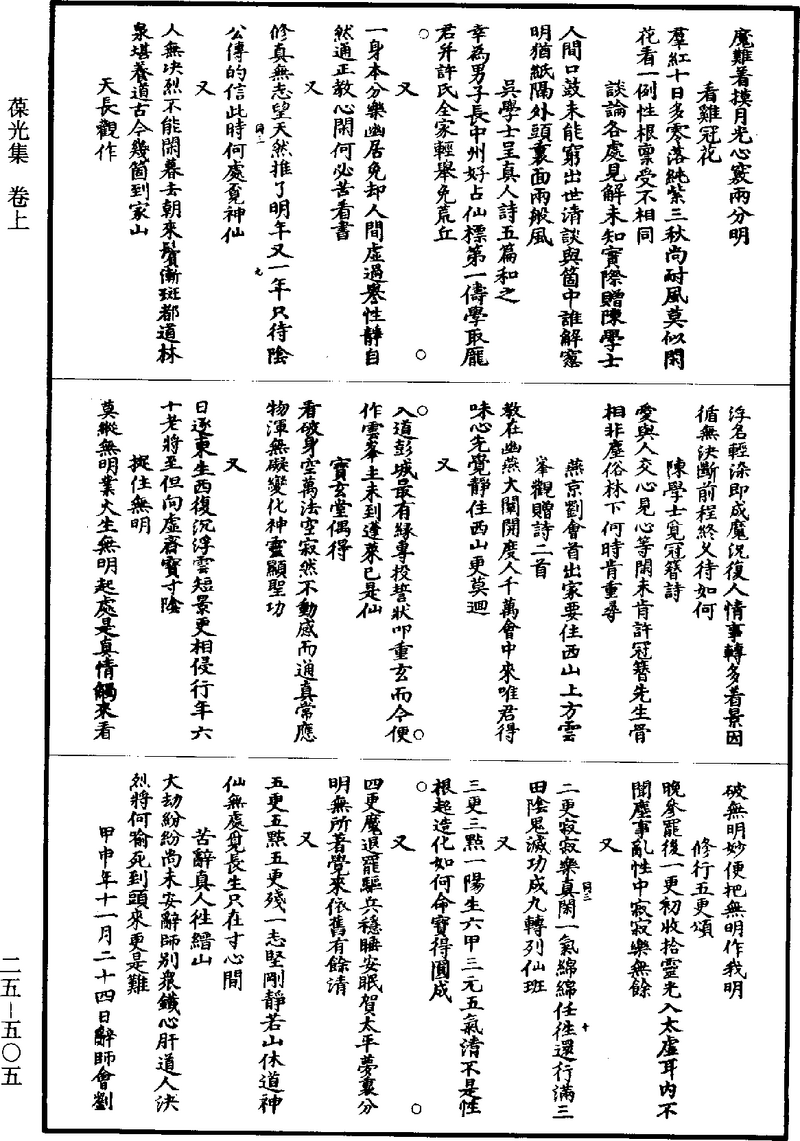 葆光集　卷上
魔難着摸月光心竅兩分明
看雞冠花
羣紅十日多零落純紫三秋尚耐風莫似閑
花看一例性根稟受不相同
談論各處見解未知實際贈陳學士
人間口鼓未能窮出世清談與箇中誰解窓
明猶紙隔外頭裏面兩般風
吳學士呈真人詩五篇和之
幸為男子長中州好占仙標第一儔學取龐
君并許氏全家輕舉免荒丘
又
一身本分樂幽居免却人間虛過譽性靜自
然通正教心閑何必苦看書
又
修真無志望天然推了明年又一年只待陰
公傳的信此時何處覓神仙
又
人無決烈不能閑暮去朝來鬢漸斑都道林
泉堪養道古今幾箇到家山
天長觀作
浮名輕染即成魔況復人情事轉多着景因
循無決斷前程終久待如何
陳學士覓冠簪詩
愛與人交心見心等閑未肯許冠簪先生骨
相非塵俗林下何時肯重尋
燕京劉會首出家要住西山上方雲
峯觀贈詩二首
教在幽燕大闡開度人千萬會中來唯君得
味心先覺靜住西山更莫迴
又
入道彭城最有緣專投誓狀叩重玄而今便
作雲峯主未到蓬萊已是仙
寶玄堂偶得
看破身空萬法空寂然不動感而通真常應
物渾無礙變化神靈顯聖功
又
日逐東生西復沉浮雲短景更相侵行年六
十老將至但向虛窓寶寸陰
捉住無明
莫縱無明業火生無明起處是真情觸來看
破無明妙便把無明作我明
修行五更頌
晚參罷後一更初收拾靈光入太虛耳內不
聞塵事亂性中寂寂樂無餘
又
二更寂寂樂真閑一氣綿綿任往還行滿三
田陰鬼滅功成九轉列仙班
又
三更三點一陽生六甲三元五氣清不是性
根超造化如何命寶得圓成
又
四更魔退罷驅兵穩睡安眠賀太平夢裏分
明無所著覺來依舊有餘清
又
五更五點五更殘一志堅剛靜若山休道神
仙無處覓長生只在寸心間
苦辭真人往縉山
大劫紛紛尚未安辭師別眾鐵心肝道人決
烈將何喻死到頭來更是難
甲申年十一月二十四日辭師會劉
二五－五〇五